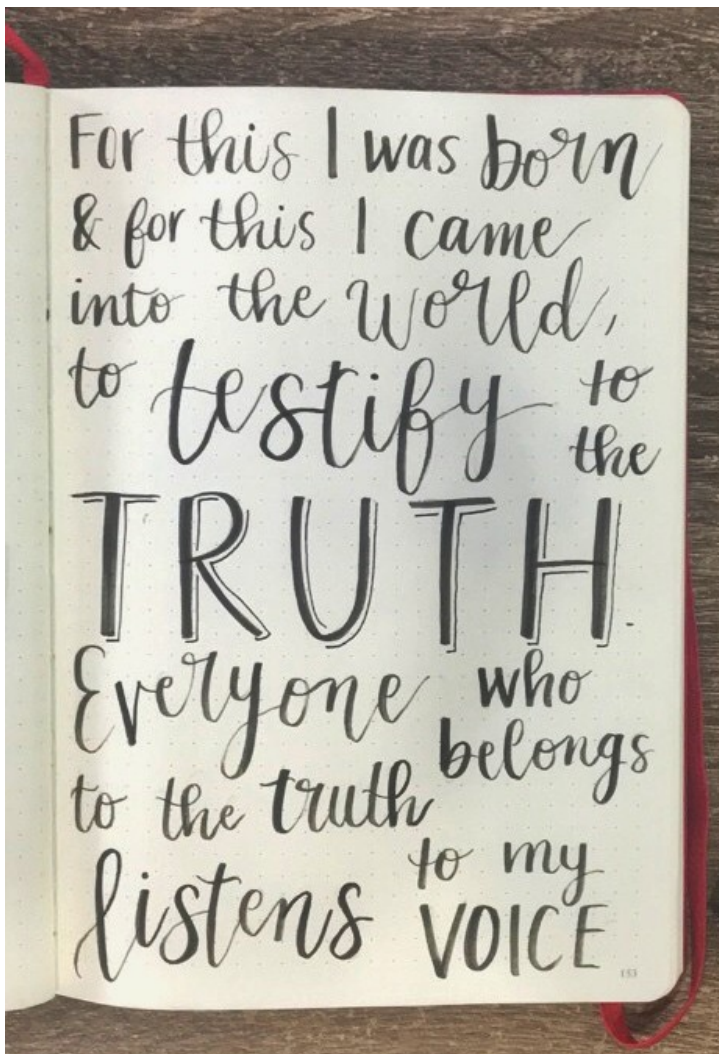 For this I was born
& for this I came
into the world,
to testify to
the
TRUTH.
Everyone who
belongs
to the truth
listens to my
VOICE
153